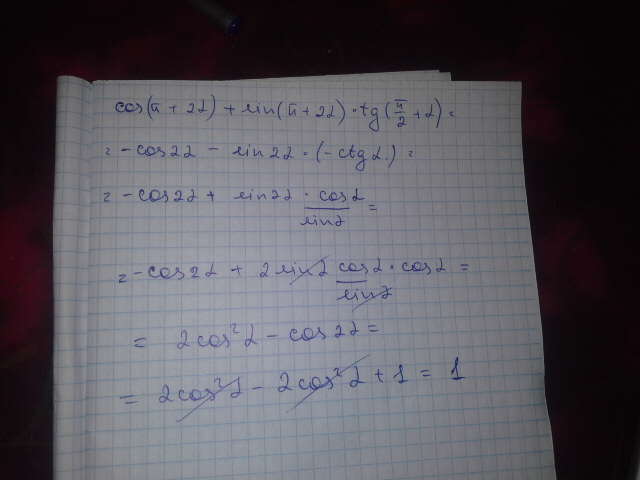 cos(π + 2α) + sin(π + 2α) · tg(π/2 + α) =
= -cos2α - sin2α · (-ctgα) =
= -cos2α + sin2α · cosα/sinα =
= -cos2α + 2sinα cosα · cosα/sinα =
= 2cos²α - cos2α =
= 2cos²α - 2cos²α + 1 = 1